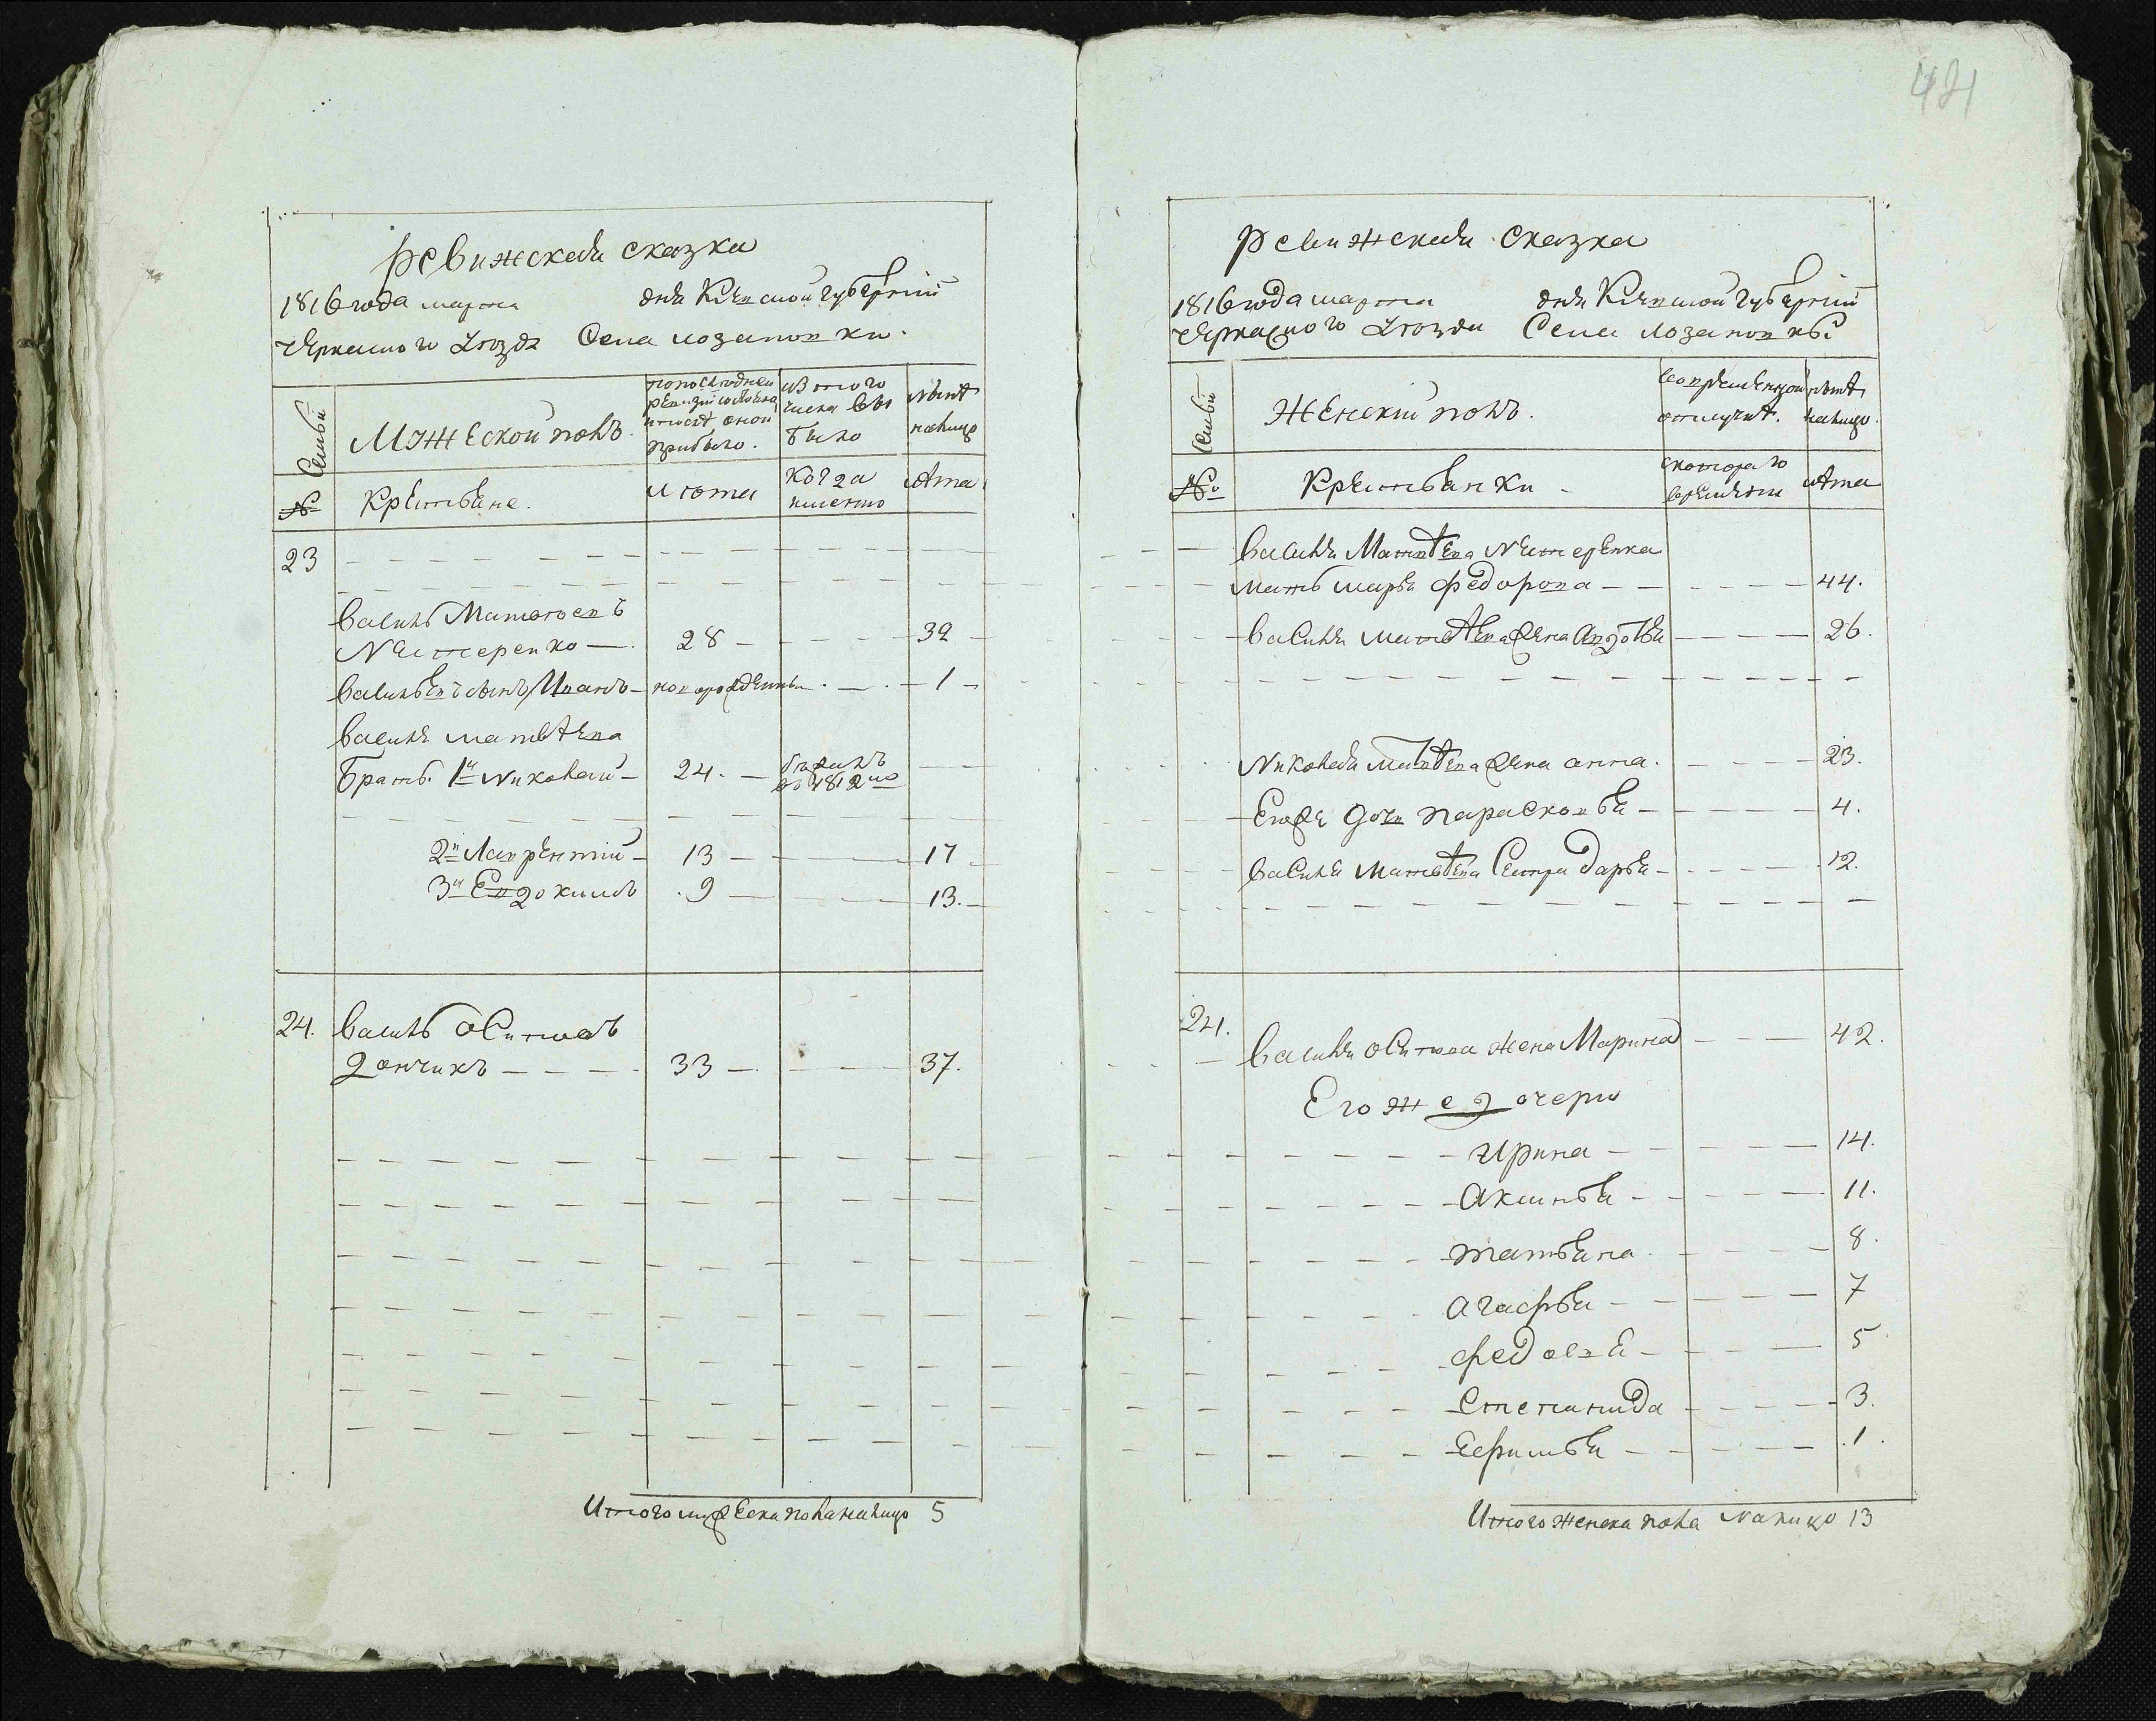 Ревижская сказка
1816 года марта дня Киевской губернии
Черкаского уезда Села лозановки.
Семьи
Мужеской полъ.
по последней ревизии состояло и после оной прибыло.
из того числа выбыло
ныне налицо
№
Крестьяне.
и лета
когда именно
лета
23
Василь Матвеевъ
Нестеренко 28 32
Васильевъ сынъ Иванъ новорожденны 1
Василя матвеева
братья 1й Николай 24. бежалъ в 1812мъ
2й Лаврентий 13 17
3й Евдокимъ 9 13.
24. Василь Осиповъ
дончикъ 33 37.
Итого мужеска пола налицо 5
421
Ревижская сказка
1816 года марта дня Киевской губернии
Черкаского уезда Села лозановки
Семьи
Женский полъ.
во временной отлучке.
ныне налицо.
№
Крестьянки
с которого времени
лета
Василя Матвеева Нестеренка
мать марья федорова 44.
Василя матвеева жена Авдотья 26.
Николая матвеева жена анна. 23.
Егоже дочь парасковья 4.
Василя матвеева Сестра дарья 12.
24.
Василя осипова жена Марина 42.
Егоже дочери
Ирина 14.
Аксинья 11.
татьяна 8.
агафья 7
федосья 5
степанида 3.
Ефимья 1.
Итого женска пола налицо 13